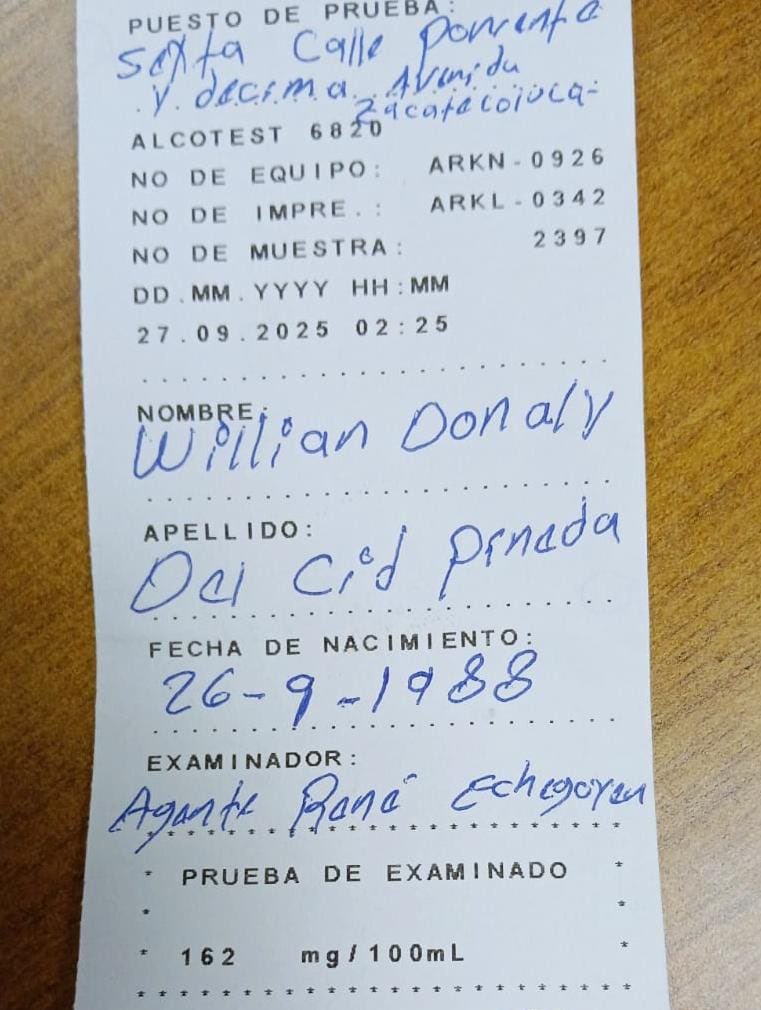 PUESTO DE PRUEBA:
Sexta Calle Poniente
y decima Avenida
Zacatecoluca-
ALCOTEST 6820
NO DE EQUIPO: ARKN-0926
NO DE IMPRE.: ARKL-0342
NO DE MUESTRA: 2397
DD.MM.YYYY HH:MM
27.09.2025 02:25
NOMBRE:
Willian Donaly
APELLIDO:
Del Cid Pineda
FECHA DE NACIMIENTO:
26-9-1988
EXAMINADOR:
Agente René Echegoyen
* * * * * * * * * * * * * * * * * * * * *
* PRUEBA DE EXAMINADO *
* *
* 162 mg/100mL *
* * * * * * * * * * * * * * * * * * * * *